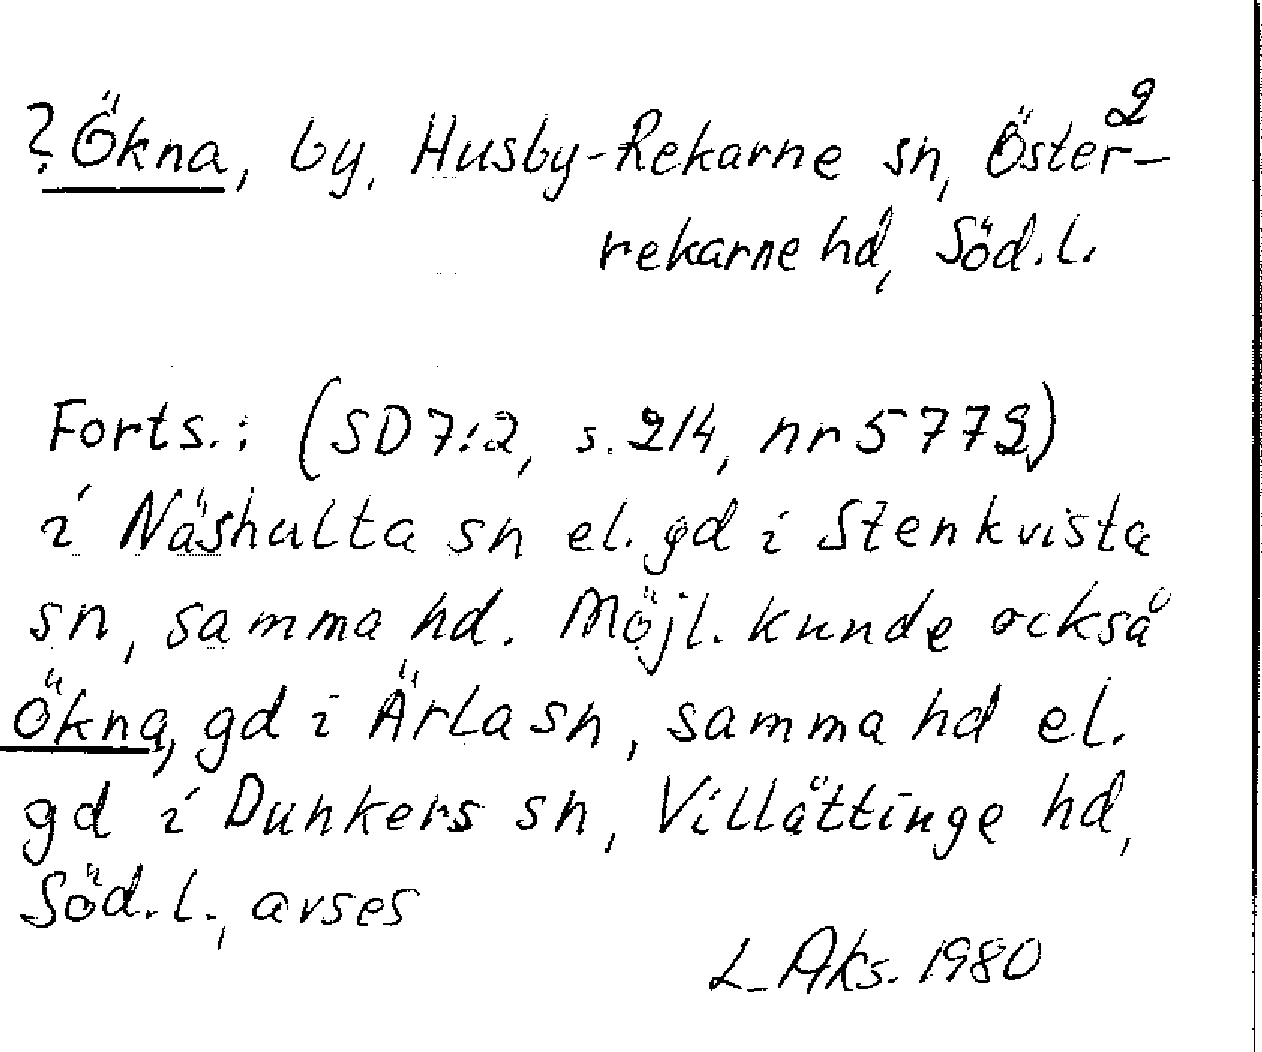 2
? Ökna, by, Husby-Rekarne sn, Öster-
rekarne hd, Söd.l.
Forts.: (SD 7:2, s. 214, nr 5772)
i Näshulta sn el. gd i Stenkvista
sn, samma hd. Möjl. kunde också
Ökna, gd i Ärla sn, samma hd el.
gd i Dunkers sn, Villåttinge hd,
Söd.l., avses
L Aks. 1980